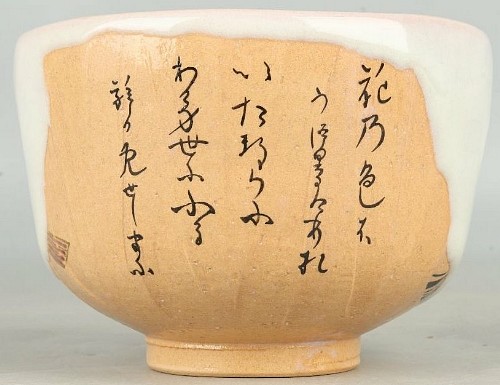 花乃色は
うつりにけりな
いたつらに
わか身世にふる
難か免世しまに